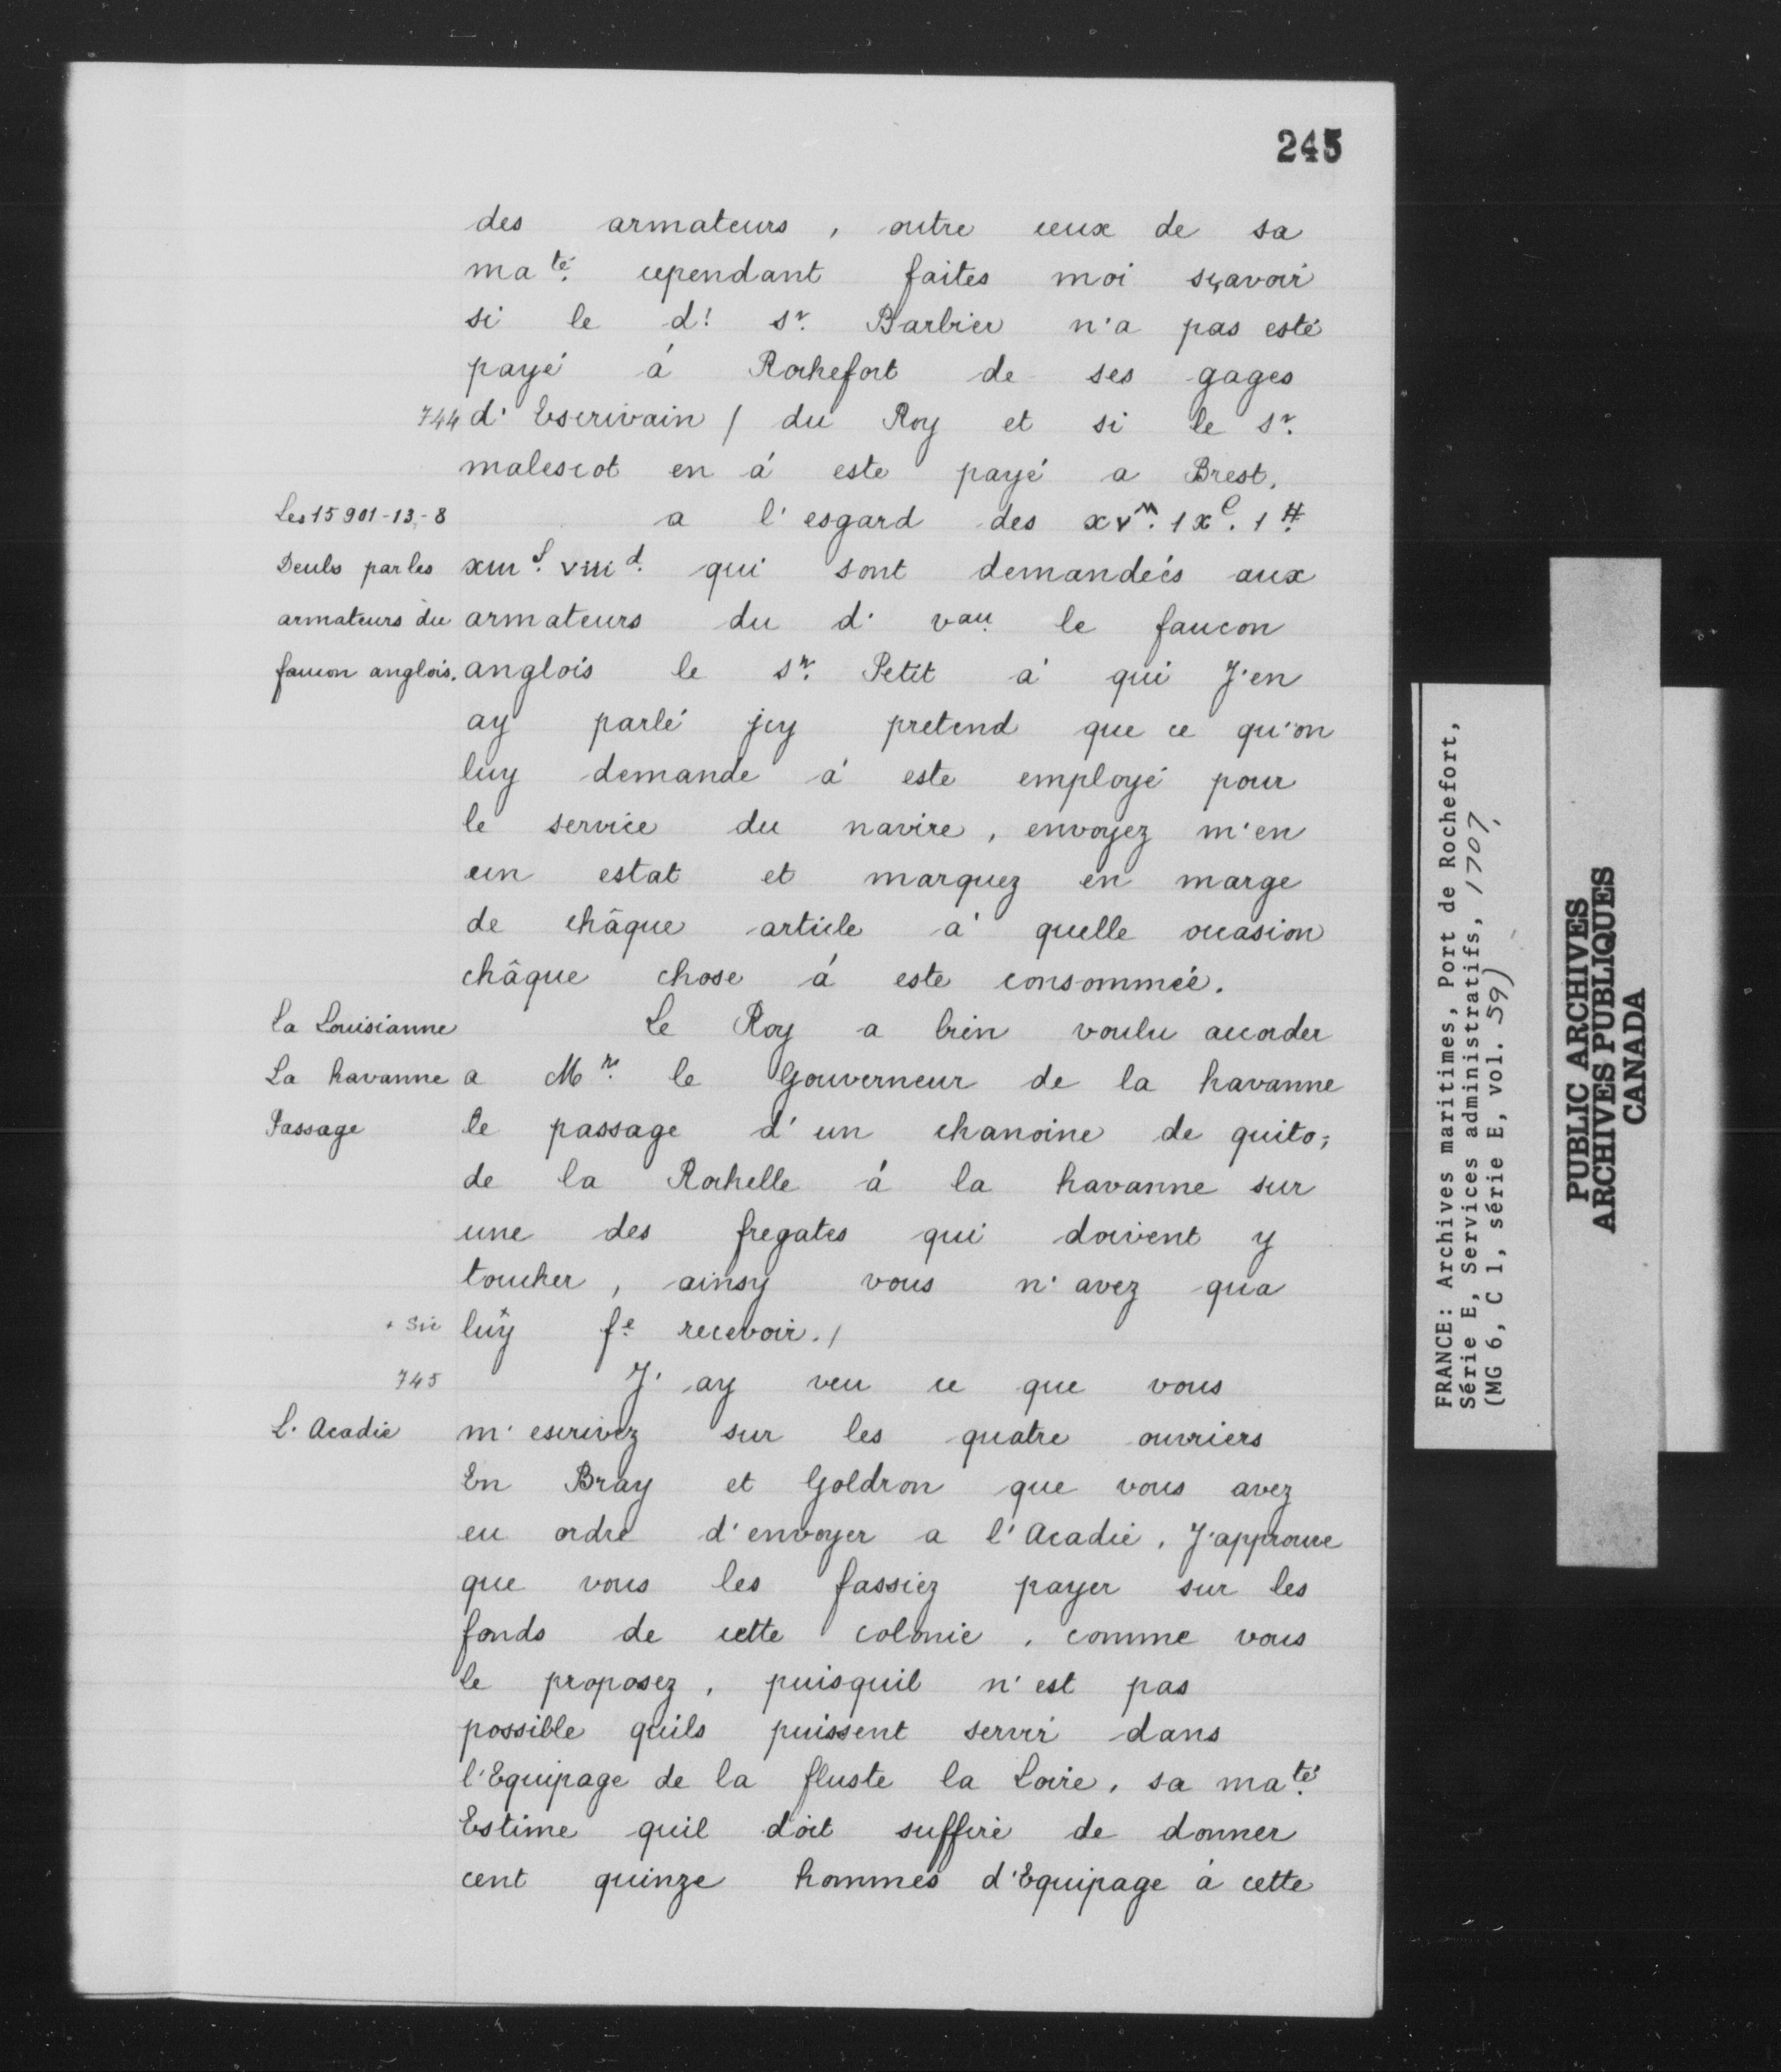 245
des armateurs, outre ceux de sa
ma té. cependant faites moi sçavoir
si le d! sr. Barbier n'a pas esté
payé á Rochefort de ses gages
744 d'Escrivain / du Roy et si le sr.
malescot en á este payé a Brest.
Les 15901-13-8 a l'esgard des xvm. 1xc. 1 ₶
Deuls par les xIIIs. VIIId. qui sont demandeés aux
armateurs du armateurs du d. vau le faucon
faucon anglois. anglois le sr. Petit á qui J'en
ay parlé jcy pretend que ce qu'on
luy demande á este employé pour
le service du navire, envoyez m'en
un estat et marquez en marge
de châque article á quelle occasion
châque chose á este consommeé.
La Louisianne Le Roy a bien voulu accorder
La havanne a Mr. le Gouverneur de la havanne
Passage le passage d'un chanoine de quito;
de la Rochelle á la havanne sur
une des fregates qui doivent y
toucher, ainsy vous n'avez qua
+ sic luy+ fe recevoir. /
745 J'ay veu ce que vous
L'Acadie m'escrivez sur les quatre ouvriers
En Bray et Goldron que vous avez
eu ordre d'envoyer a l'Acadie, J'approuve
que vous les fassiez payer sur les
fonds de cette colonie, comme vous
le proposez, puisquil n'est pas
possible quils puissent servir dans
l'Equipage de la fluste la Loire, sa ma té.
Estime quil doit suffire de donner
cent quinze hommes d'Equipage á cette
FRANCE: Archives maritimes, Port de Rochefort,
Série E, Services administratifs, 1707,
(MG 6, C 1, série E, vol. 59)
PUBLIC ARCHIVES
ARCHIVES PUBLIQUES
CANADA